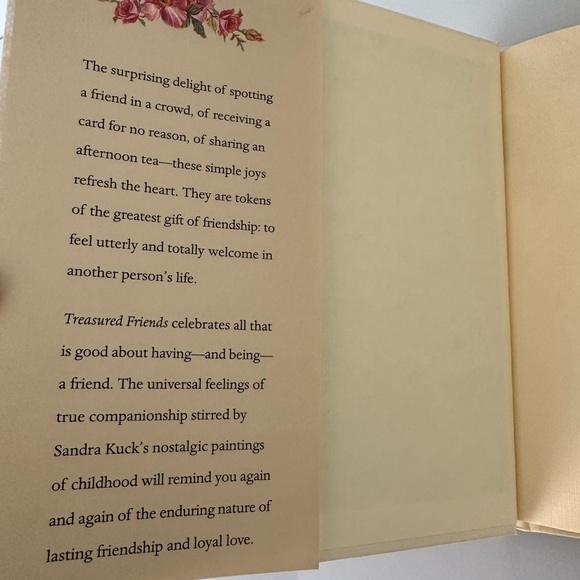 The surprising delight of spotting
a friend in a crowd, of receiving a
card for no reason, of sharing an
afternoon tea—these simple joys
refresh the heart. They are tokens
of the greatest gift of friendship: to
feel utterly and totally welcome in
another person's life.
Treasured Friends celebrates all that
is good about having—and being—
a friend. The universal feelings of
true companionship stirred by
Sandra Kuck's nostalgic paintings
of childhood will remind you again
and again of the enduring nature of
lasting friendship and loyal love.